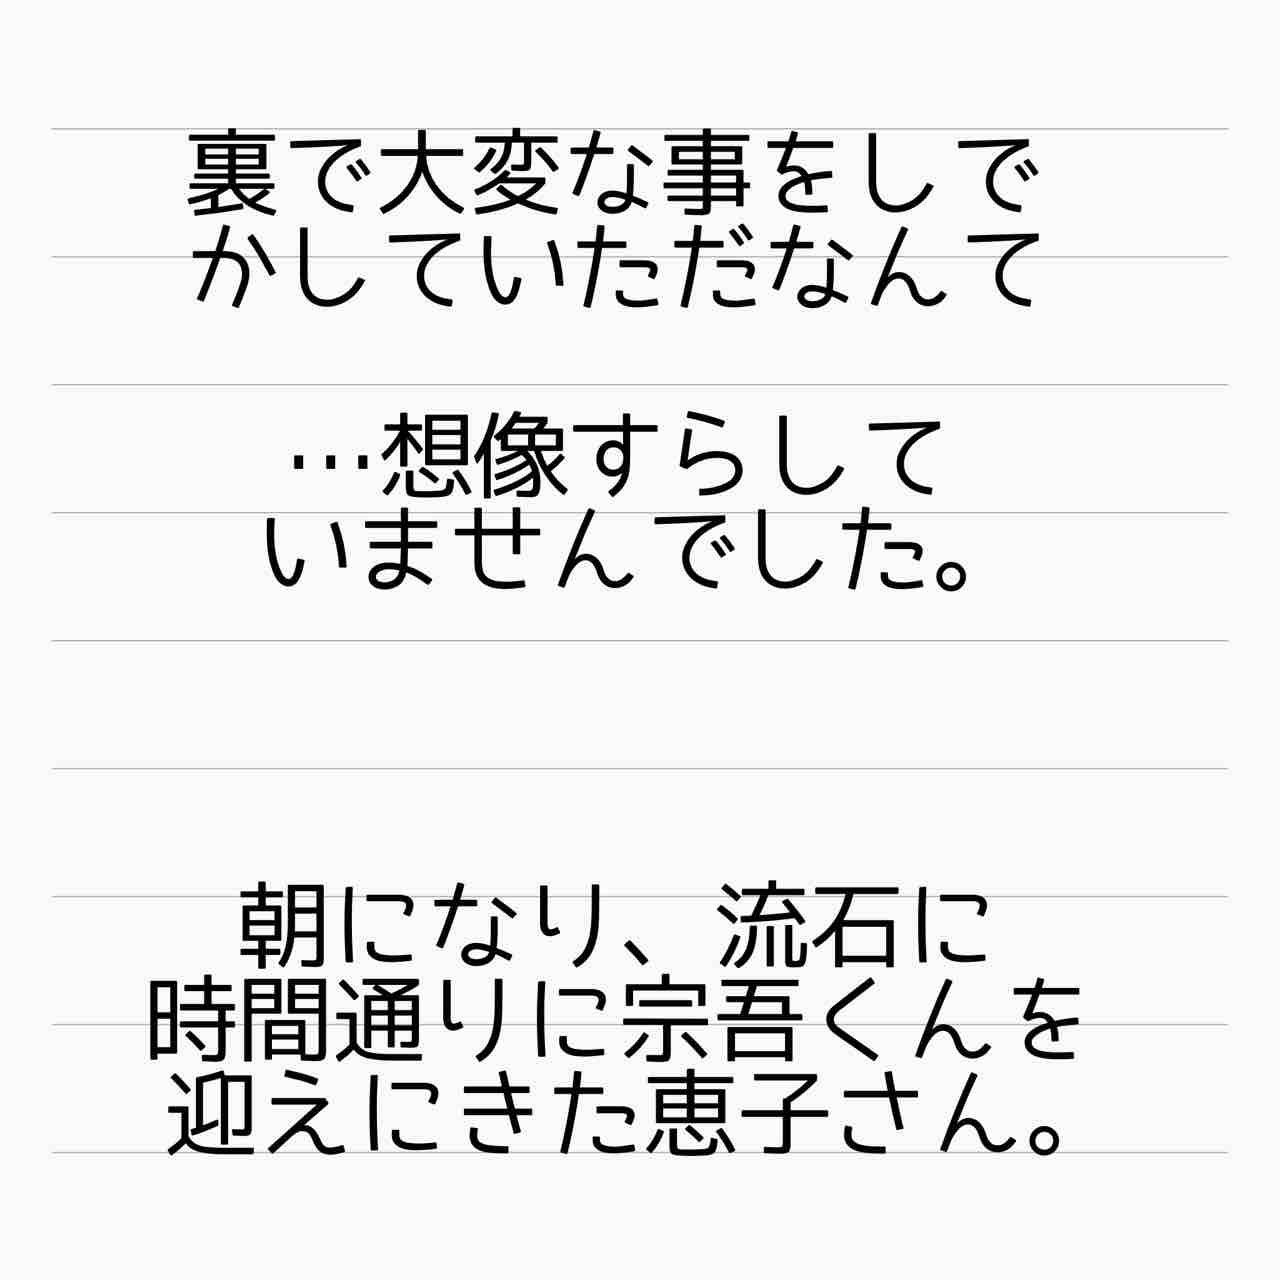 裏で大変な事をしで
かしていただなんて
…想像すらして
いませんでした。
朝になり、流石に
時間通りに宗吾くんを
迎えにきた恵子さん。